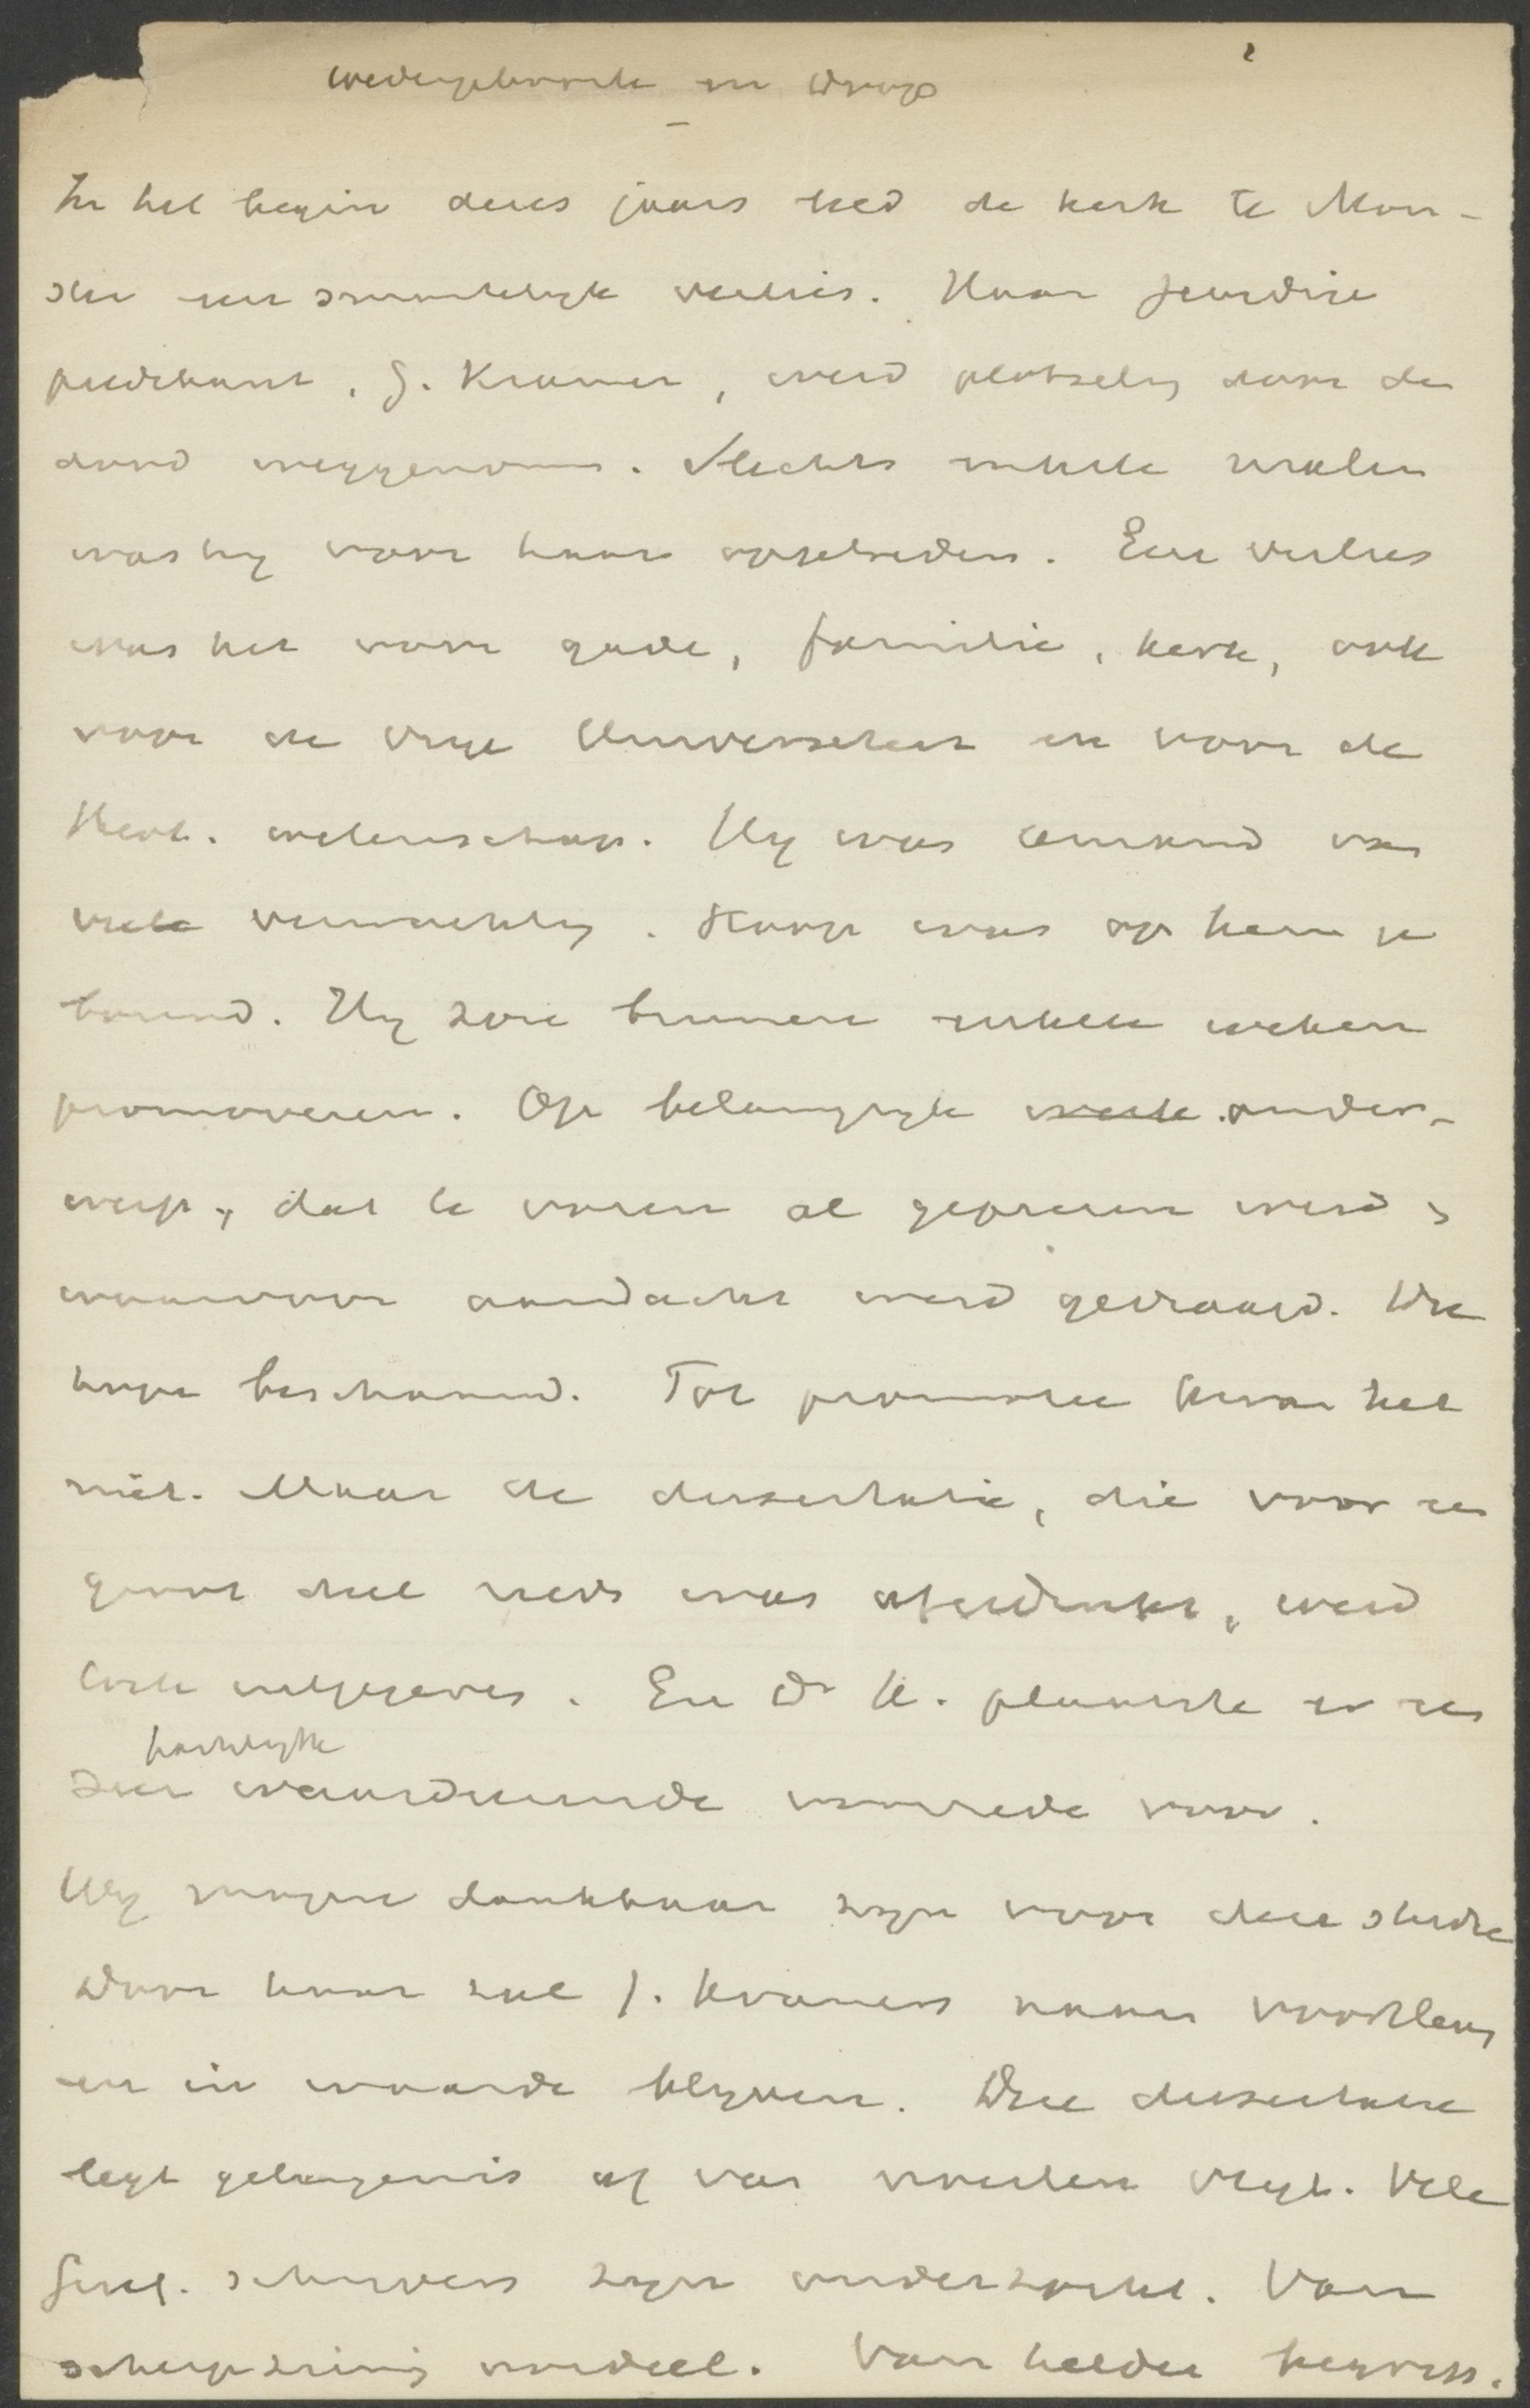 wedergeboorte en doop
In het begin dezes jaars leed de kerk te Mon-
ster een smartelijk verlies. Haar jeugdige
predikant, G. Kramer, werd plotseling door den
dood weggenomen. Slechts enkele malen
was hij voor haar opgetreden. Een verlies
was het voor gade, familie, kerk, ook
voor de Vrije Universiteit en voor de
theol. wetenschap. Hij was iemand van
veel verwachting. Hoop was op hem ge
bouwd. Hij zou binnen enkele weken
promoveren. Op belangrijk onder-
werp, dat te voren al geprezen werd &
waarvoor aandacht werd gevraagd. Die
hope beschaamd. Tot promotie kwam het
niet. Maar de dissertatie, die voor een
groot deel reeds was afgedrukt, werd
toch uitgegeven. En Dr K. plaatste er een
hartelijke
zeer waardeerende voorrede voor.
Wij mogen dankbaar zijn voor deze studie
Door haar zal G. Kramers naam voortleven
en in waarde blijven. Deze dissertatie
legt getuigenis af van noesten vlijt. Vele
Geref. schrijvers zijn onderzocht. Van
scherpzinnig oordeel. Van helder begrip.